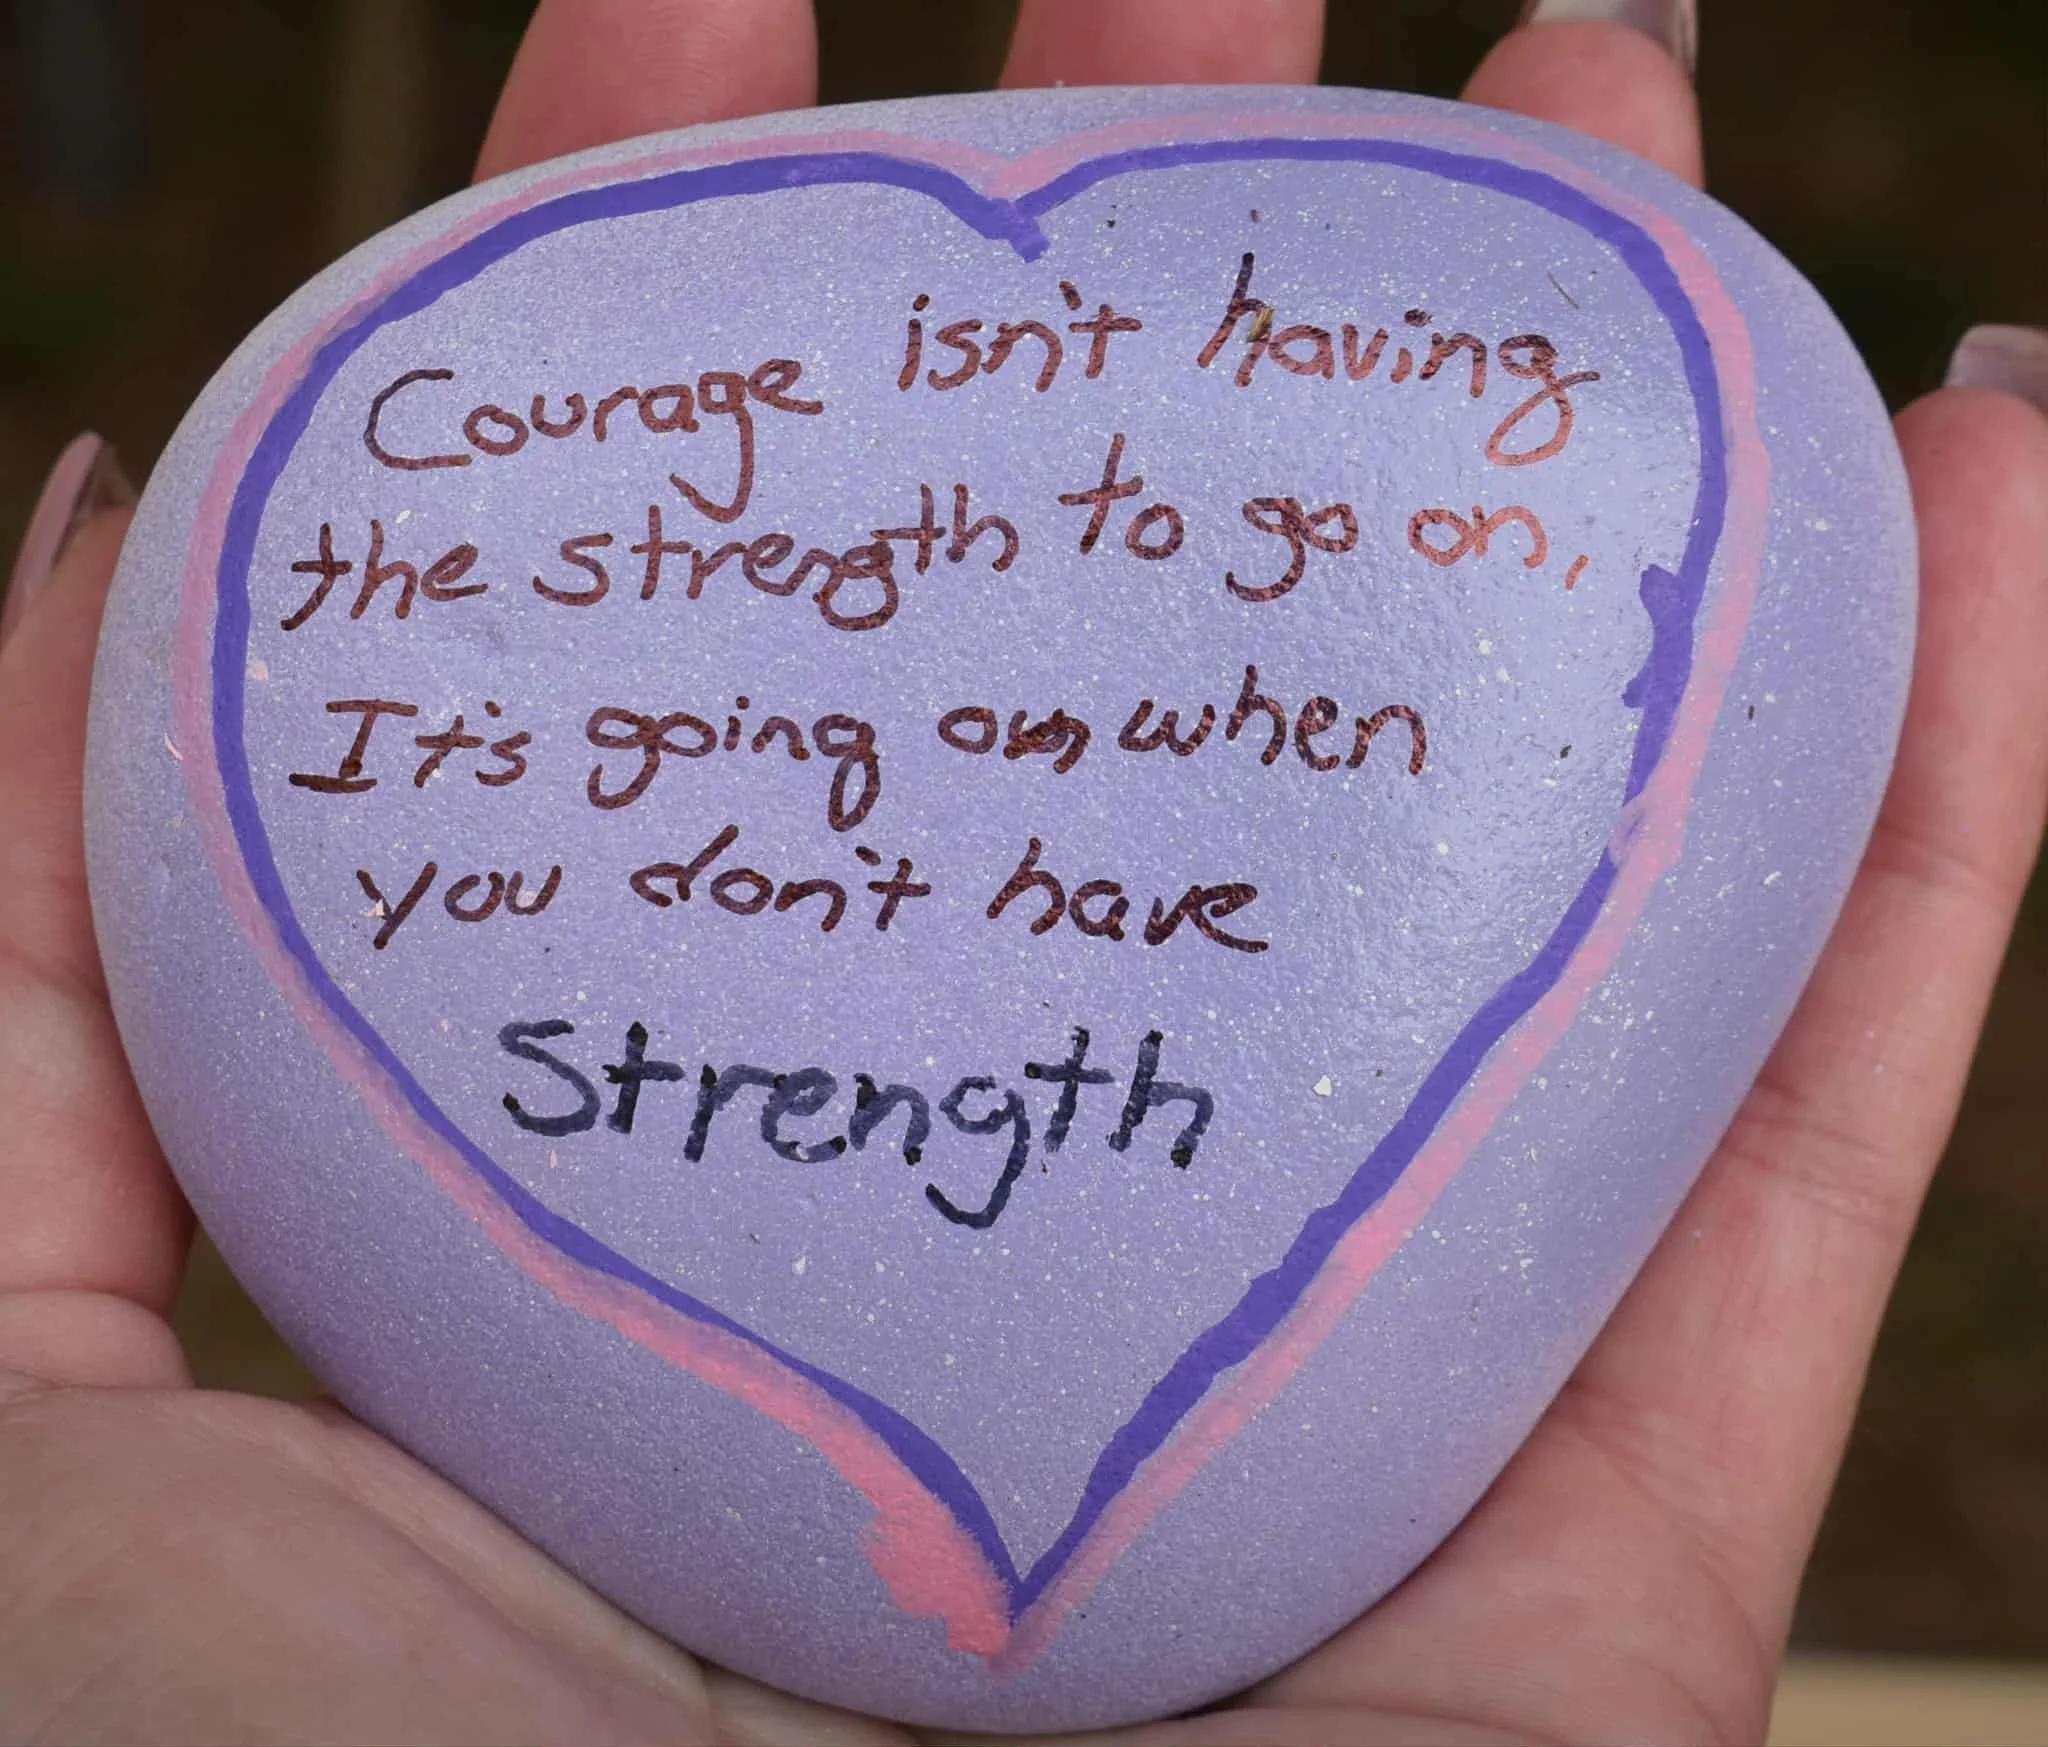 Courage isn't having
the strength to go on,
It's going on when
you don't have
Strength